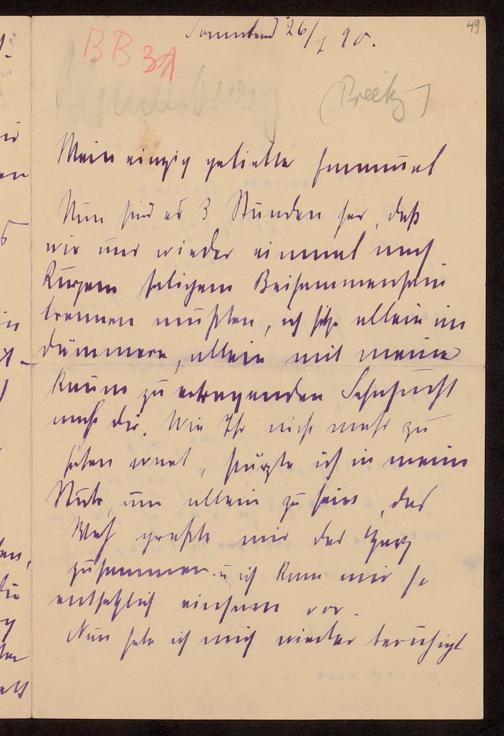 49
Sonnabend 26/7 90.
BB 31
(Preetz)
Mein einzig geliebter Emanuel
Nun sind es 3 Stunden her, daß
wir uns wieder einmal nach
kurzem seligem Beisammensein
trennen mußten, ich sitze allein im
Dämmern, allein mit meiner
kaum zu ertragenden Sehnsucht
nach dir. Wie Ihr nicht mehr zu
sehen wart, stürzte ich in mein
Stube, um allein zu sein, das
Weh preßte mir das Herz
zusammen u ich kam mir so
entsetzlich einsam vor.
Nun habe ich mich wieder beruhigt